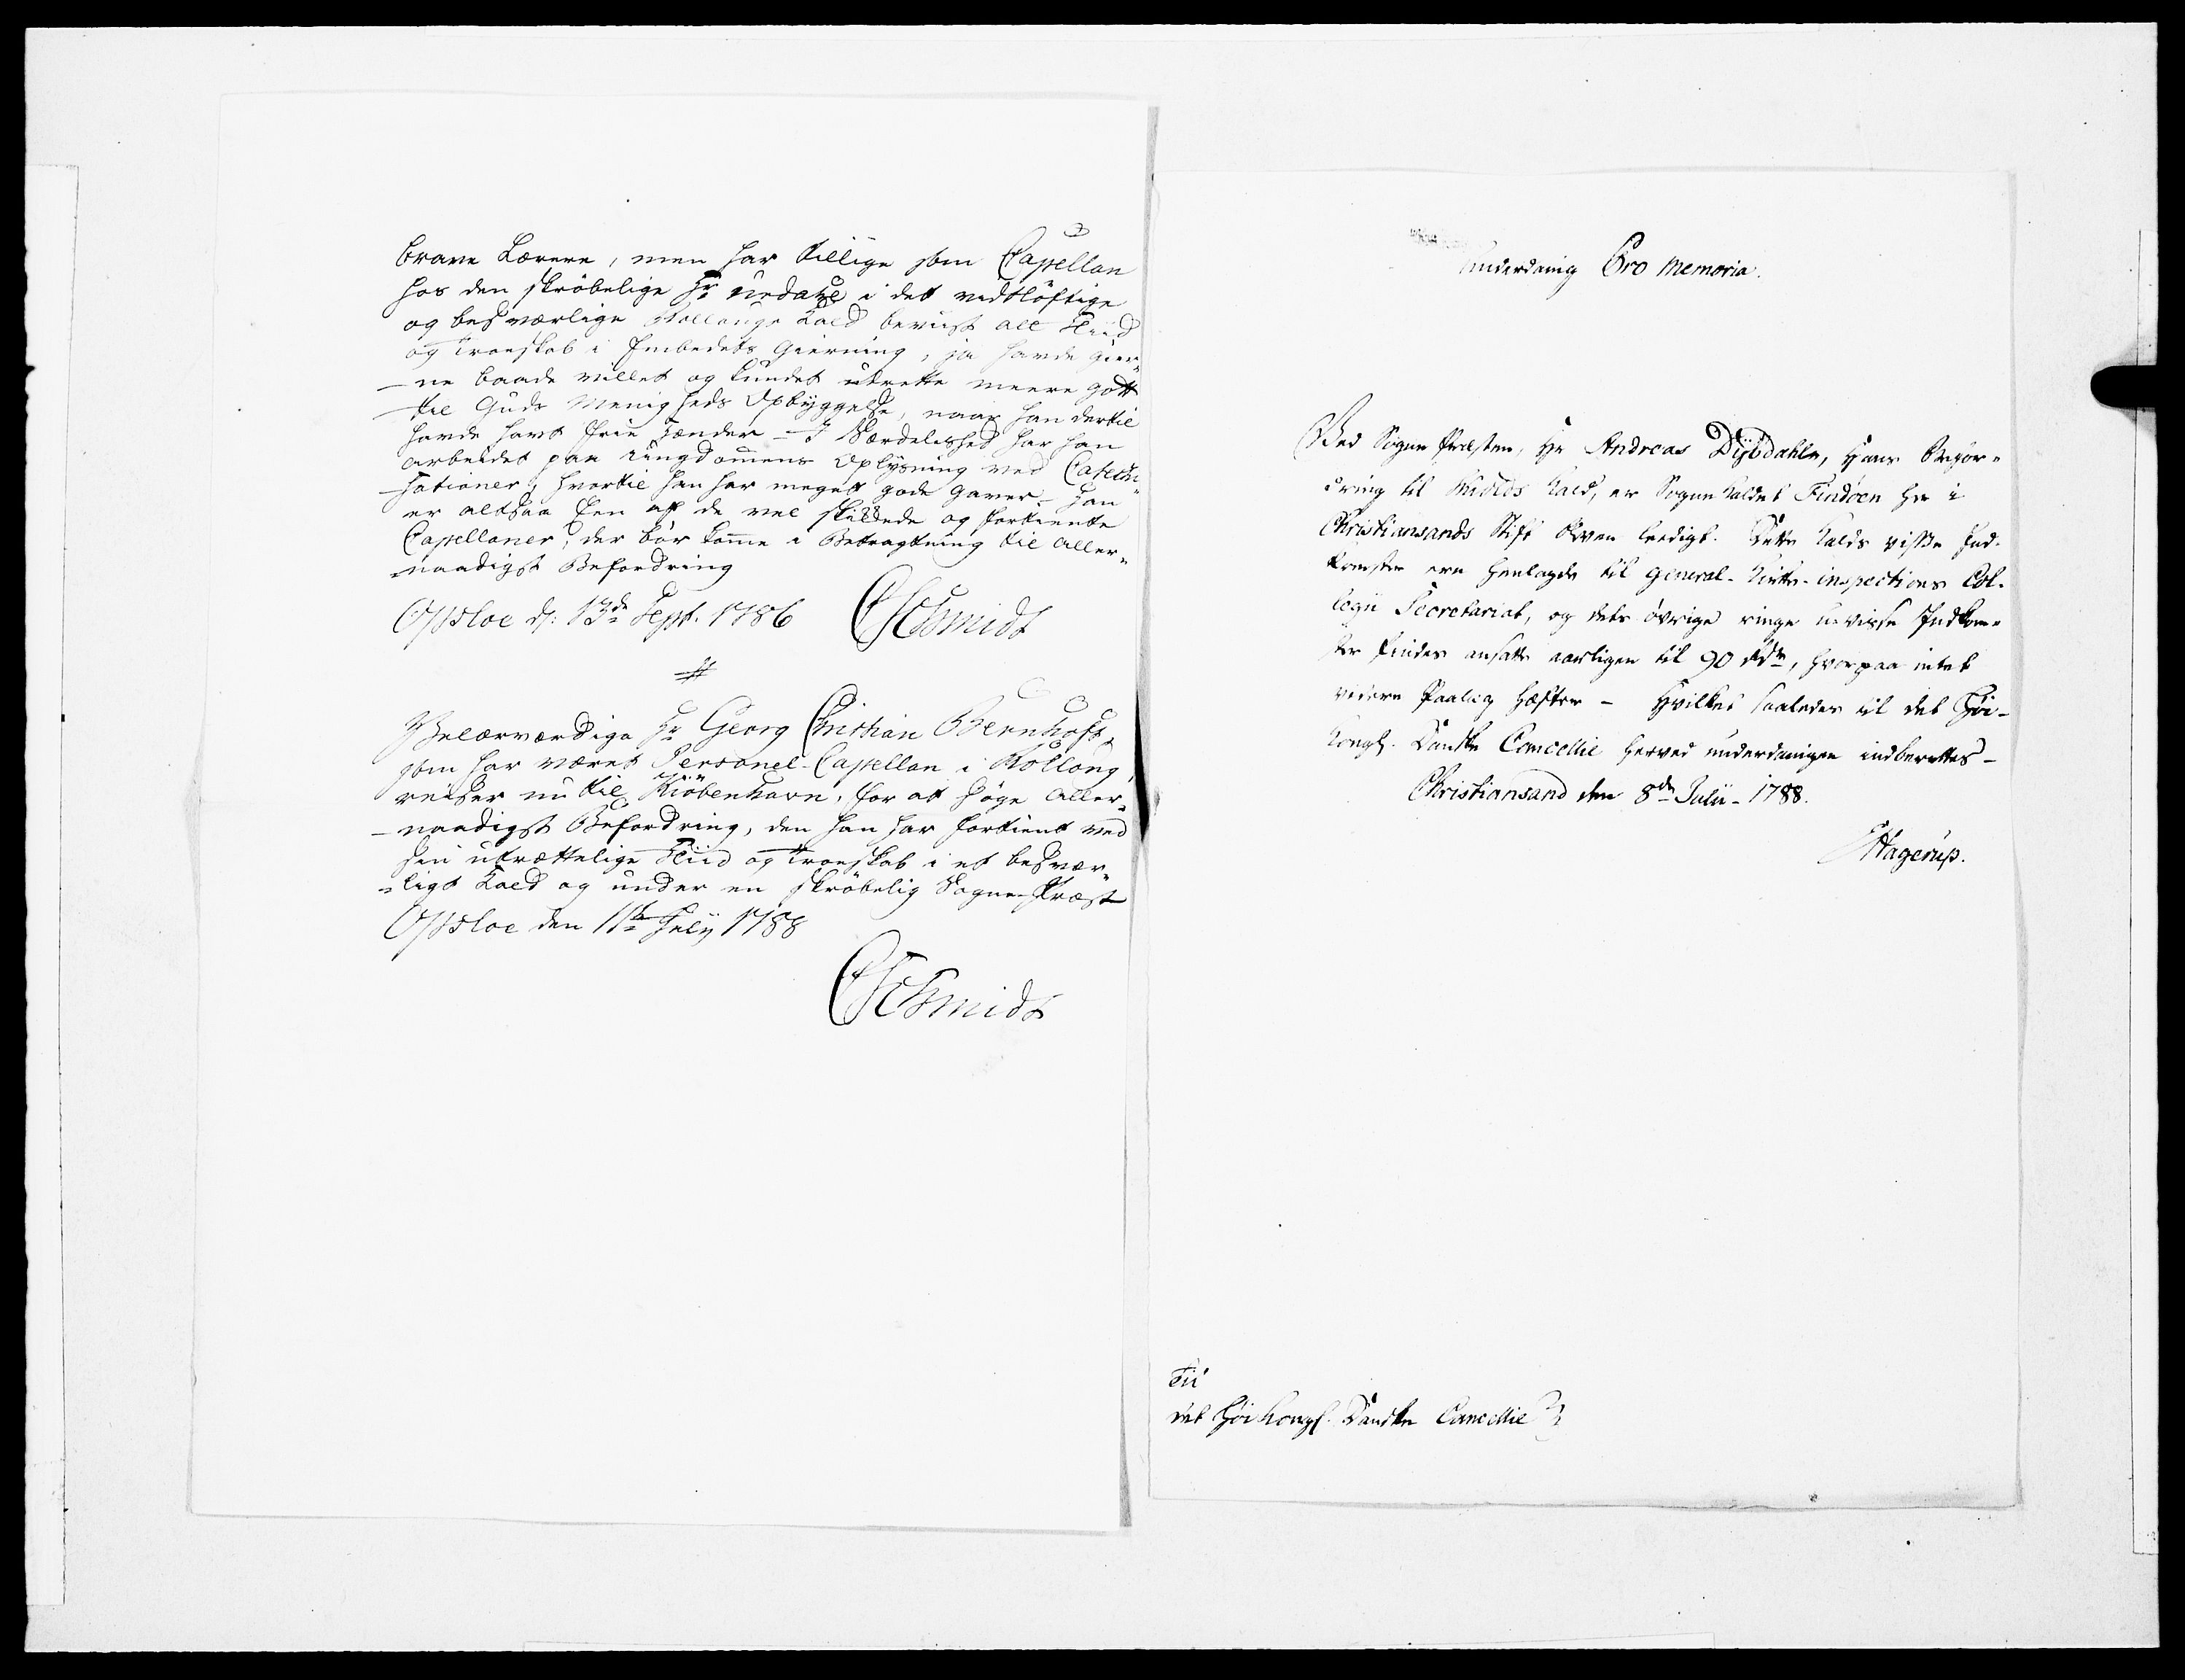 brave Lærere, men har tillige som Capellan
hos den skröbelige Hr Urdahl i det vidtlöftige
og besværlige Kollongs Kald beviist all Fliid
og Troeskab i Embedets Gierning, ja havde gier„
-ne baade villet og kundet udrette meere gott
til Guds Meenigheds Opbyggelse, naar han dertil
havde havt frie Hænder - I Særdeleshed har han
arbeidet paa Ungdommens Oplysning ved Catechi„
-sationer, hvortil han har meget gode Gaver - Han
er altsaa Een af de vel skikkede og fortiente
Capellaner, der bör komme i Betragtning til Aller„
naadigst Befordring
Opsloe d: 13de Sept. 1786 CSchmidt
Velærværdige Hr Georg Christian Bernhoft,
som har været Personel-Capellan i Kollong,
reiser nu til Kiöbenhavn, for at söge Aller„
-naadigst Befordring, den han har fortient ved
sin utrættelige Fliid og Troeskab i et besvær„
„ligt Kald og under en skröbelig Sogne-Præst
Opsloe den 11te July 1788
CSchmidt
Underdanig Pro Memoria.
Ved Sogne Præsten, Hr Andreas Dybdahls, Hans Befor„
dring til Kald, er Sognekaldet Findöen her i
Christiansands Stift bleven leedigt. Dette Kalds visse Ind„
komster ere henlagde til General-Kirke-inspections Col„
legii Secretariat, og dets övrige ringe uvisse Indkom„
ster findes ansatte aarligen til 90 rdr, hvorpaa intet
videre Paalæg hæfter - Hvilket saaledes til det Höi-
Kongl. Danske Cancellie herved underdanigen indberettes -
Christiansand den 8de Julii - 1788.
Hagerup.
Til
det Höi Kongl. Danske Cancellie